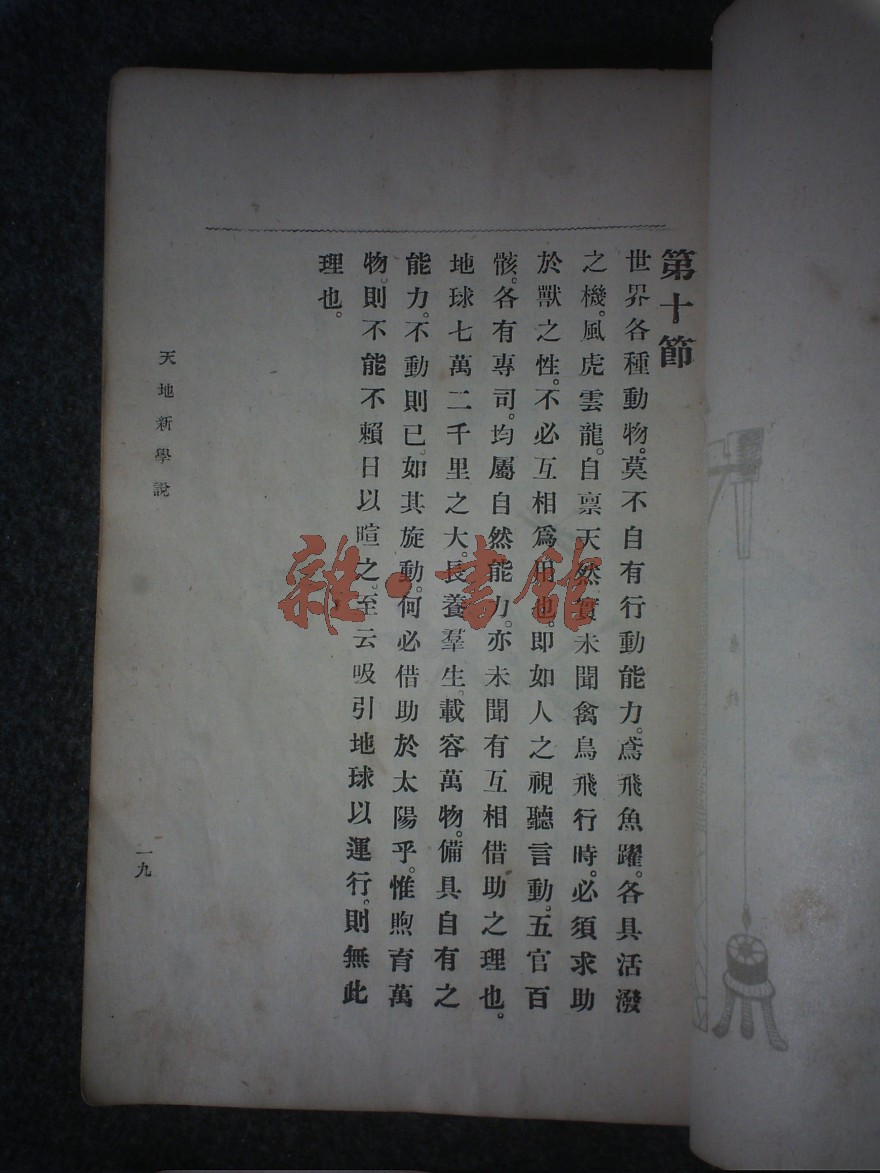 第十節
世界各種動物。莫不自有行動能力。鳶飛魚躍。各具活潑
之機。風虎雲龍。自禀天然。實未聞禽鳥飛行時。必須求助
於獸之性。不必互相爲用也。即如人之視聽言動。五官百
骸。各有專司。均屬自然能力。亦未聞有互相借助之理也。
地球七萬二千里之大。長養羣生。載容萬物。備具自有之
能力。不動則已。如其旋動。何必借助於太陽乎。惟煦育萬
物。則不能不賴日以暄之。至云吸引地球以運行。則無此
理也。
天地新學說
一九
雜·書館